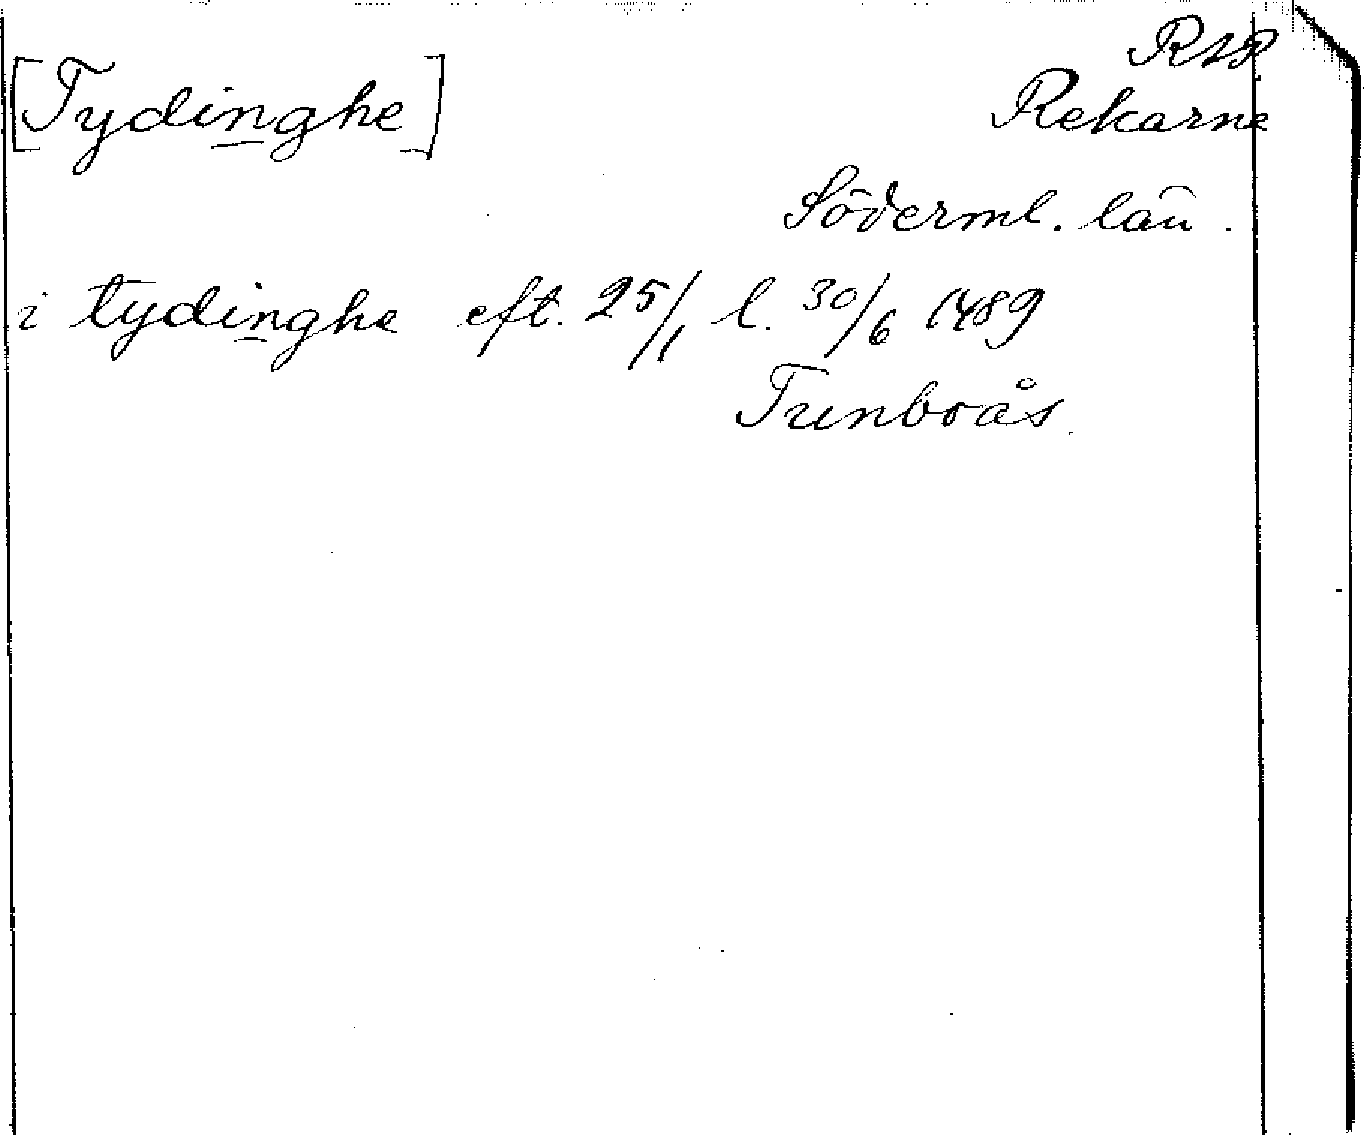 [Tydinghe]
Rekarne
Söderml. län.
i tydinghe eft. 25/1 l. 30/6 1489
Tunboås.